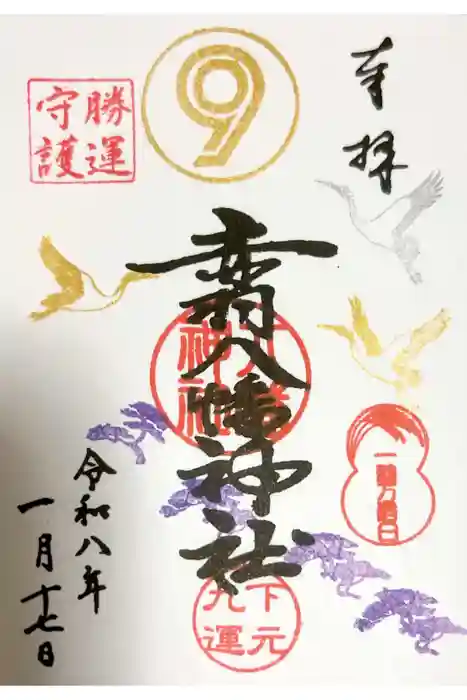 奉拝
9
勝運
守護
八幡神社
一粒万倍日
下元
九運
令和八年
一月十七日